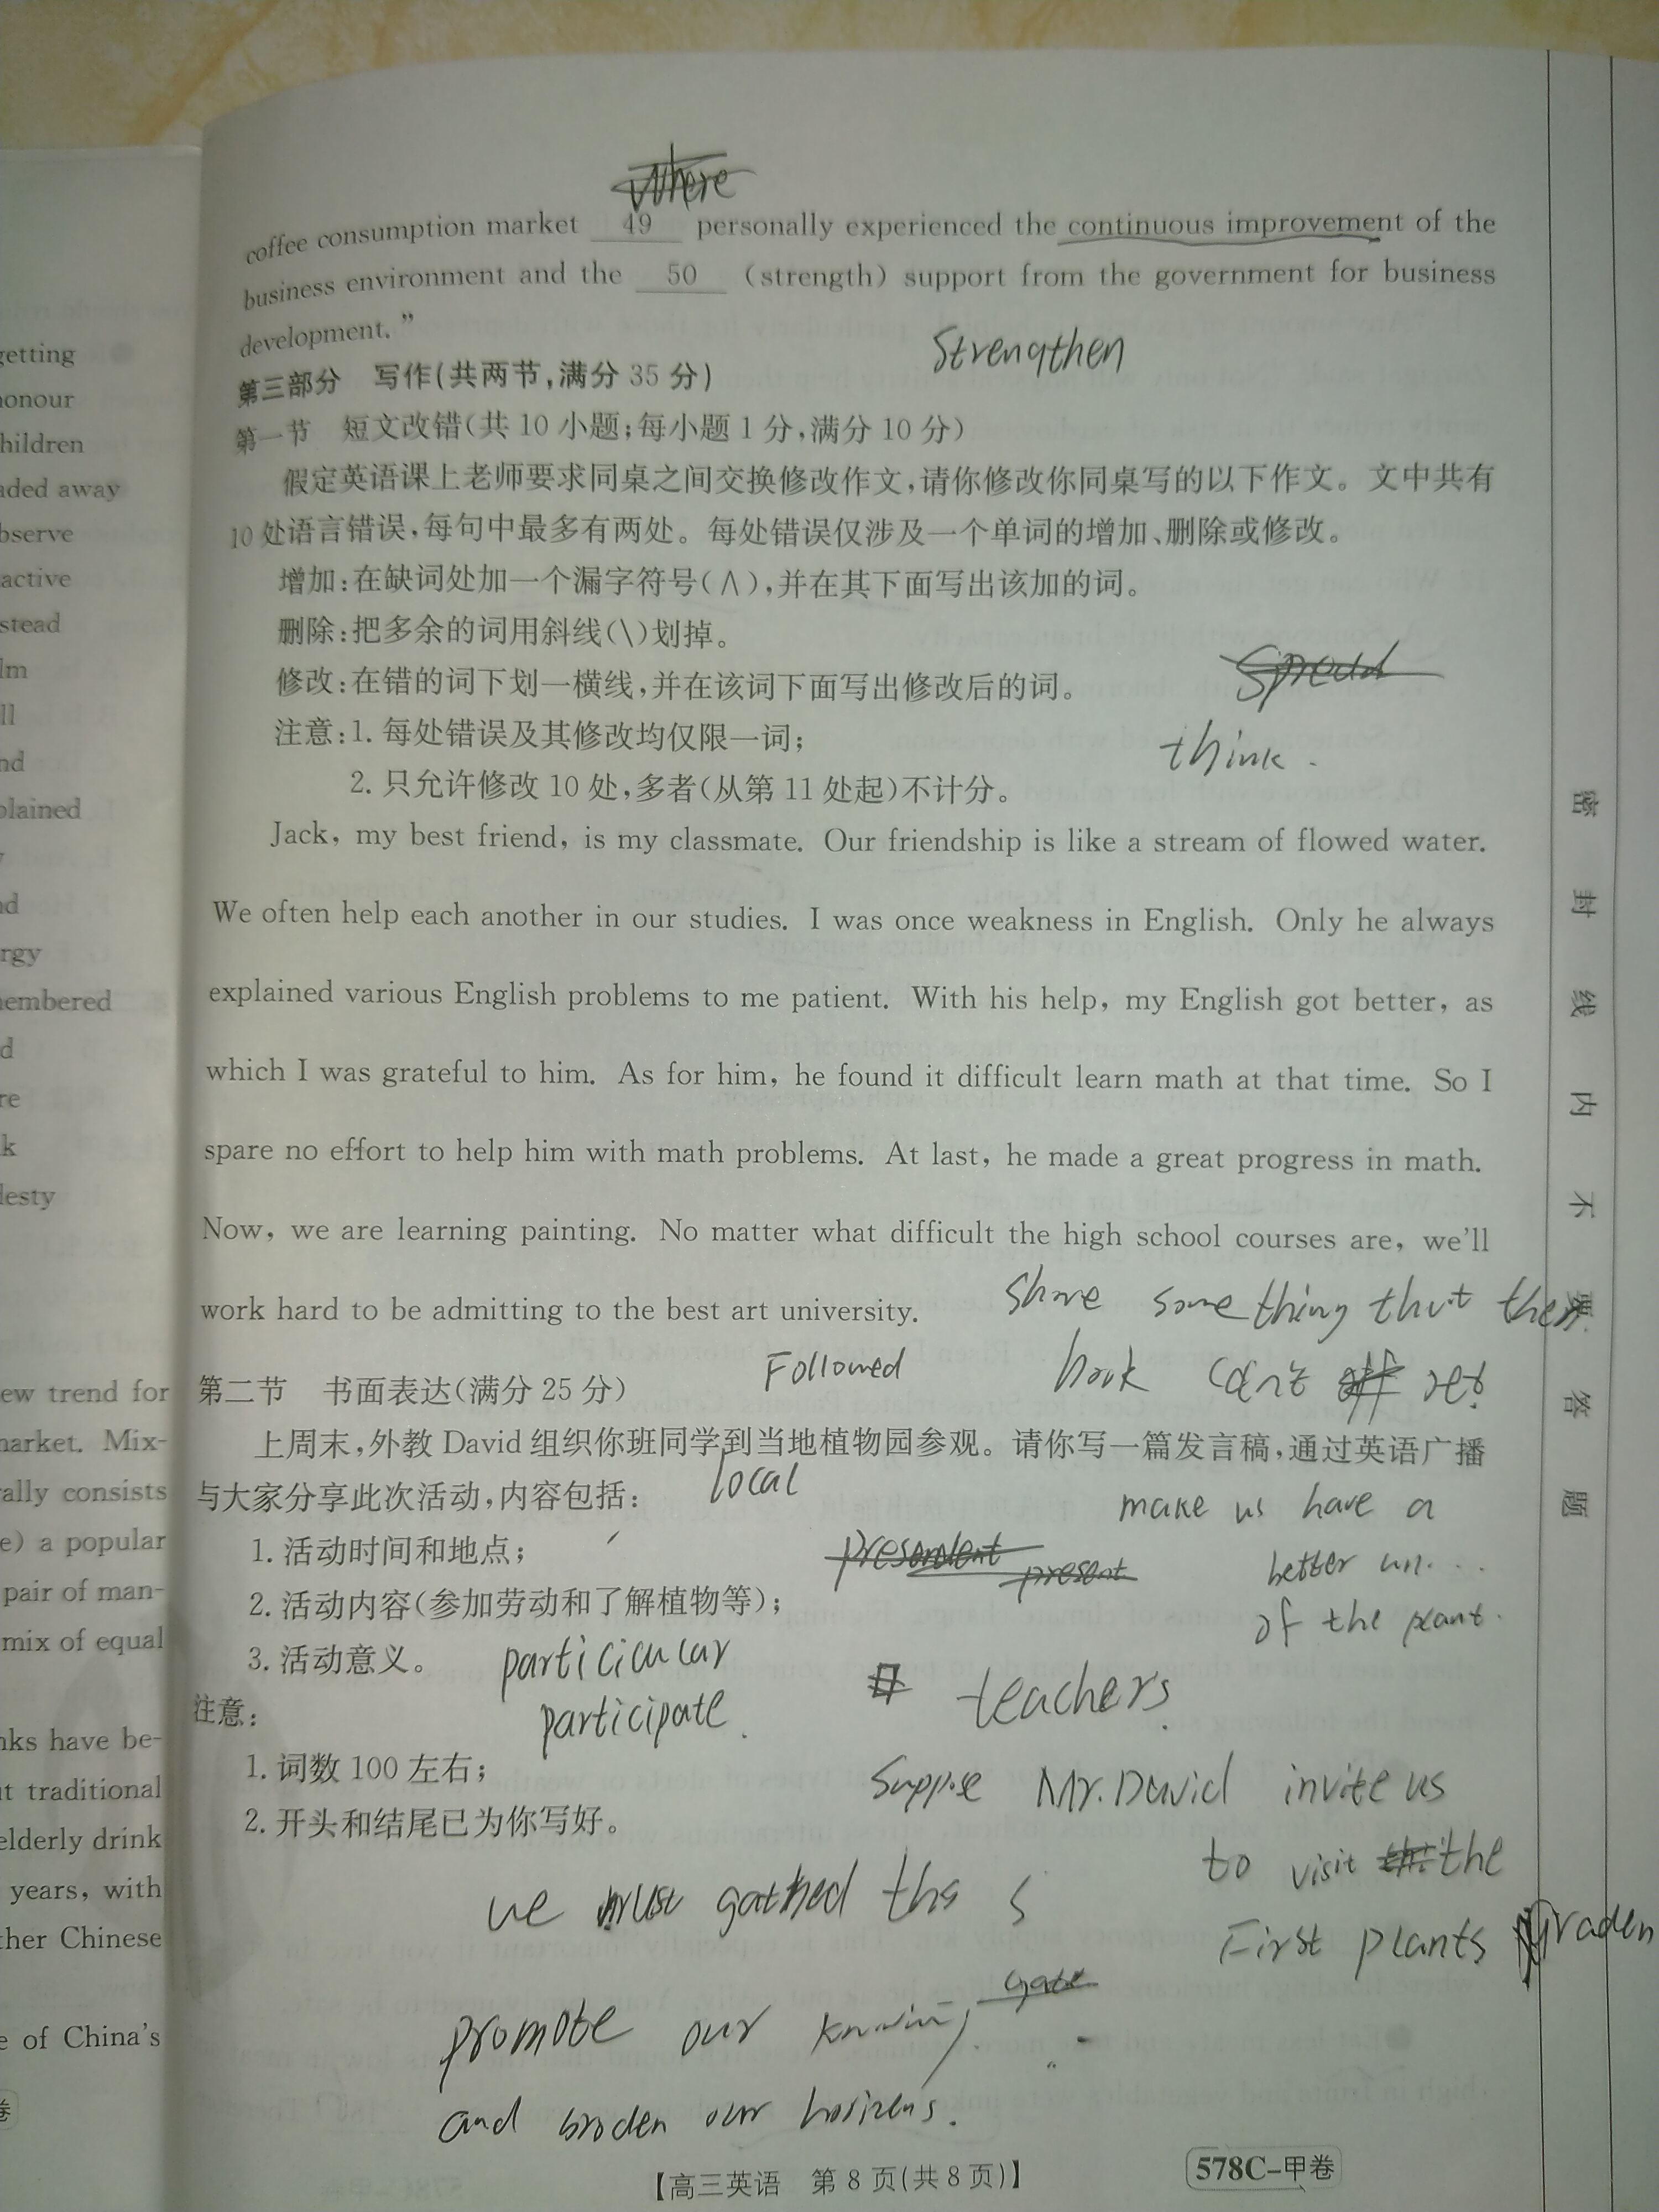 where
coffee consumption market 49 personally experienced the continuous improvement of the
business environment and the 50 (strength) support from the government for business
development.”
Strengthen
第三部分 写作(共两节,满分 35 分)
第一节 短文改错(共 10 小题;每小题 1 分,满分 10 分)
假定英语课上老师要求同桌之间交换修改作文,请你修改你同桌写的以下作文。文中共有
10 处语言错误,每句中最多有两处。每处错误仅涉及一个单词的增加、删除或修改。
增加:在缺词处加一个漏字符号(∧),并在其下面写出该加的词。
删除:把多余的词用斜线(\)划掉。
修改:在错的词下划一横线,并在该词下面写出修改后的词。
注意:1. 每处错误及其修改均仅限一词;
think.
2. 只允许修改 10 处,多者(从第 11 处起)不计分。
Jack, my best friend, is my classmate. Our friendship is like a stream of flowed water.
We often help each another in our studies. I was once weakness in English. Only he always
explained various English problems to me patient. With his help, my English got better, as
which I was grateful to him. As for him, he found it difficult learn math at that time. So I
spare no effort to help him with math problems. At last, he made a great progress in math.
Now, we are learning painting. No matter what difficult the high school courses are, we'll
work hard to be admitting to the best art university.
share something that the
book can't get
Followed
第二节 书面表达(满分 25 分)
上周末,外教 David 组织你班同学到当地植物园参观。请你写一篇发言稿,通过英语广播
与大家分享此次活动,内容包括:
local
make us have a
better un....
of the plant.
1. 活动时间和地点;
present
2. 活动内容(参加劳动和了解植物等);
3. 活动意义。
particicular
participate.
teachers.
注意:
1. 词数 100 左右;
2. 开头和结尾已为你写好。
Suppose Mr.David invite us
to visit the
First plants Graden
we must gathed the s
promote our
and broden our horizens.
【高三英语 第 8 页(共 8 页)】
578C-甲卷
密封线内不要答题
getting
honour
children
aded away
observe
active
stead
lm
ll
nd
plained
y
nd
rgy
membered
d
re
k
desty
ew trend for
market. Mix-
rally consists
e) a popular
pair of man-
mix of equal
nks have be-
ut traditional
elderly drink
years, with
ther Chinese
e of China's
卷